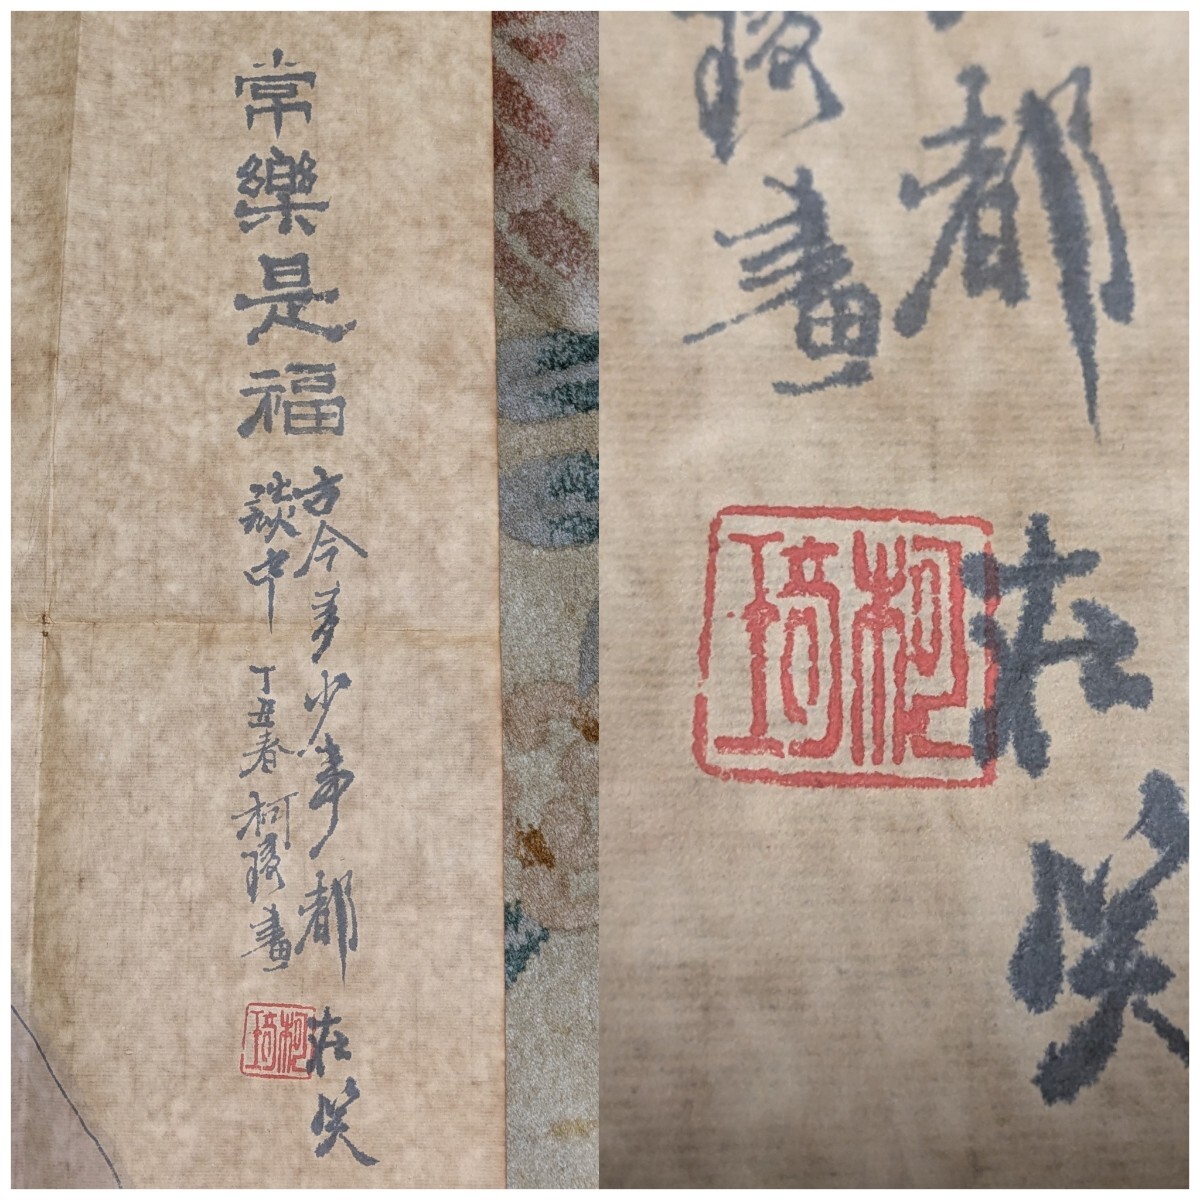 常樂是福
方今多少事都在笑
談中
丁丑春柯琦畫
柯琦
都在笑
琦畫
柯琦